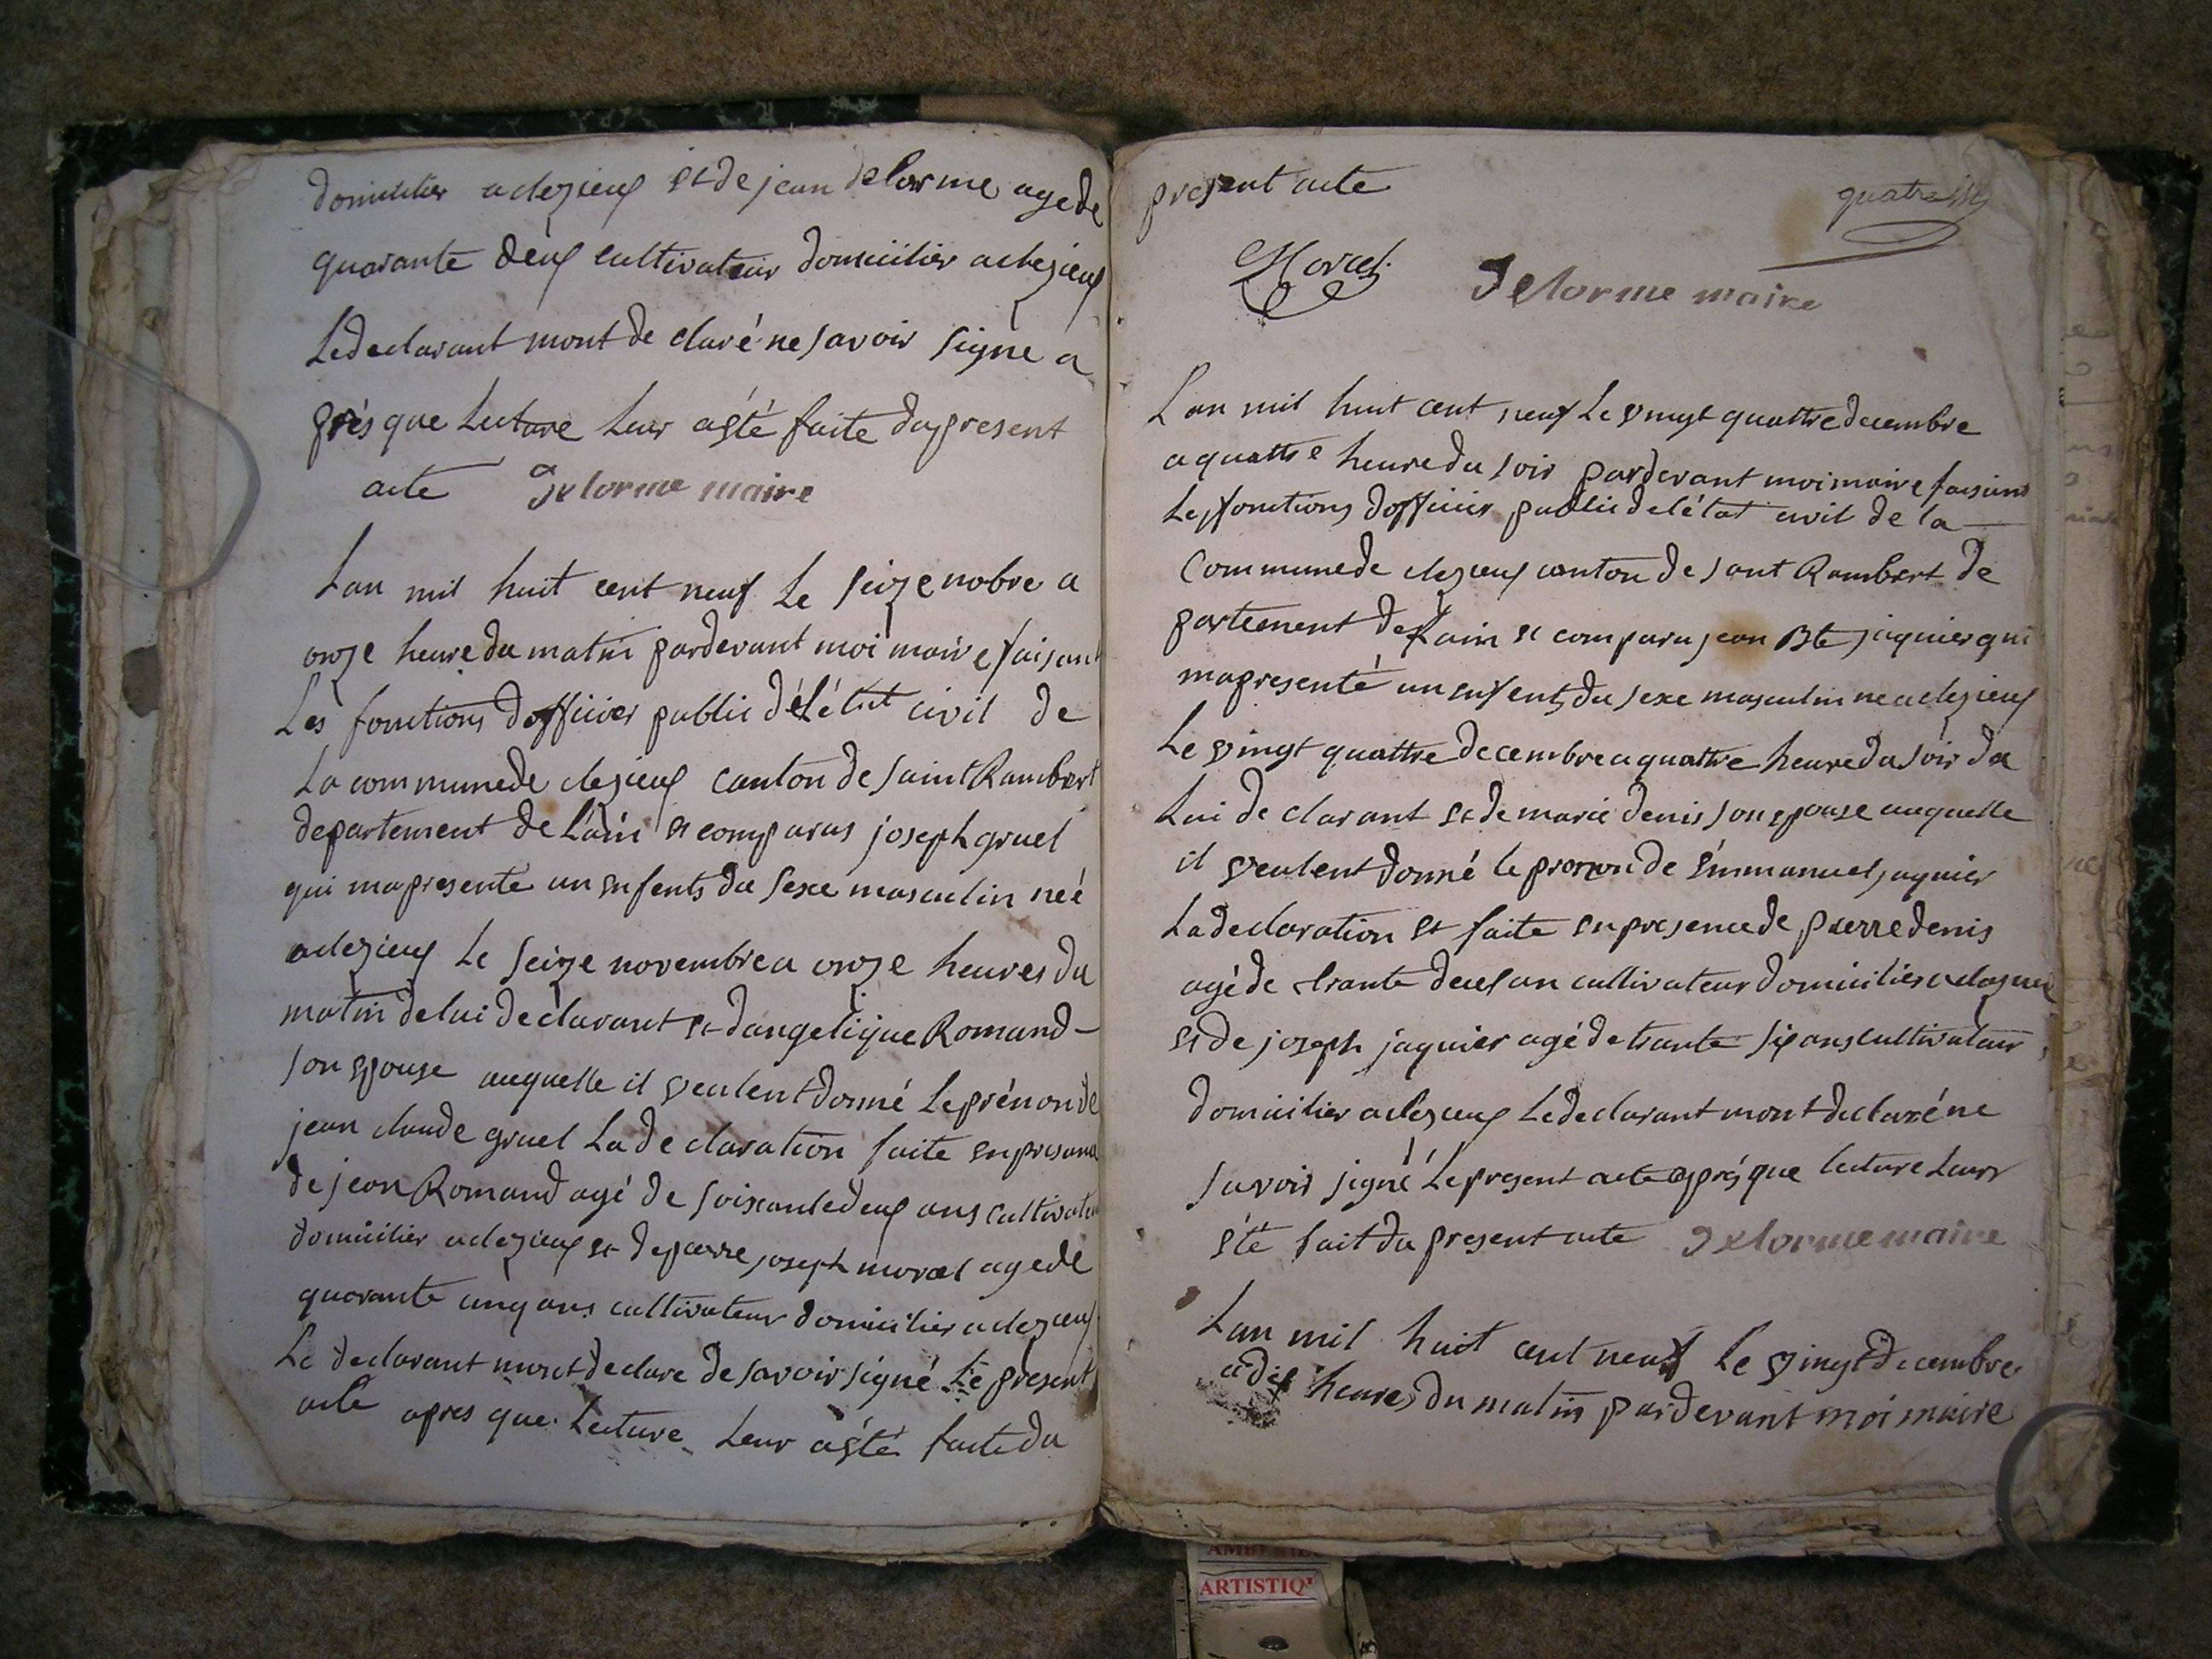 domicilier aclezieux et de jean delorme age de
quarante deux cultivateur domicilier aclezieux
Le declarant mont de claré ne savoir signé a
près que Lecture Leur aété faite du present
acte Delorme maire
Lan mil huit cent neuf Le seize nobre a
onze heure du matin pardevant moi maire faisant
Les fonctions dofficier public de Létat civil de
La commune de clezieux canton de saint Rambert
departement de Lain et comparus joseph gruel
qui mapresenté un enfents du sexe masculin neé
aclezieux Le seize novembre a onze heures du
matin de lui declarant et dangelique Romand -
son epouse auquelle il veulent donné Le prénon de
jean claude gruel La declaration faite enpresence
de jean Romand agé de soixante deux ans cultivateur
domicilier aclezieux et de pierre joseph morel age de
quarante cinq ans cultivateur domicilier aclezieux
Le declarant mont declare de savoir signé Le present
acte apres que Lecture Leur aété faite du
present acte
quatre
Morel
Delorme maire
Lan mil huit cent neuf Le vingt quattre decembre
a quattre heure du soir pardevant moi maire faisant
Les fonctions dofficier public de létat civil de la
Commune de clezieux canton de saint Rambert de
partement de Lain et comparu jean Bte jaquier qui
mapresenté un enfents du sexe masculin ne aclezieux
Le vingt quattre decembre a quattre heure du soir de
Lui de clarant et de marie denis son epouse auquelle
il veulent donné le pronon de émmanuel jaquier
La declaration et faite enpresence de pierre denis
agé de trante deux an cultivateur domicilier aclezieux
et de joseph jaquier agé de trante six ans cultivateur
domicilier aclezieux Le declarant mont declaré ne
savoir signé Le present acte après que lecture Leurs
été fait du present acte Delorme maire
Lan mil huit cent neuf Le vingt decembre
a dix heures du matin pardevant moi maire
ARTISTIQ